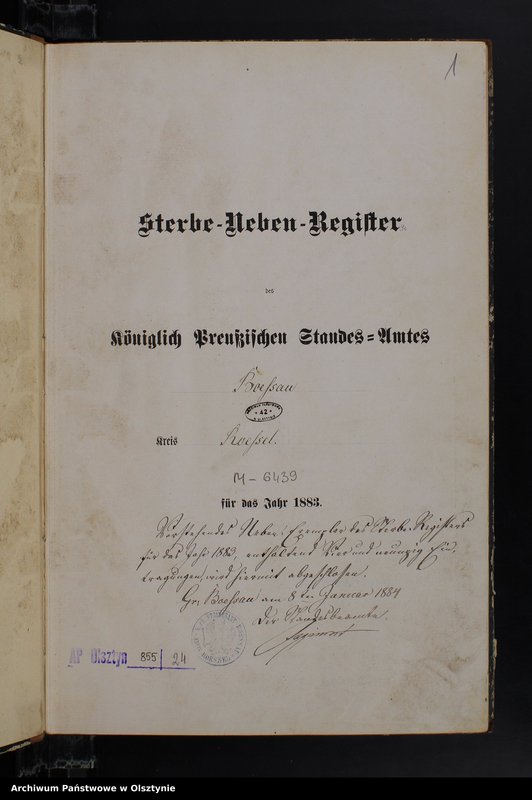 1
Sterbe-Neben-Register
des
Königlich Preußischen Standes-Amtes
Boessau
42
Kreis Roessel.
M - 6439
für das Jahr 1883.
Vorstehendes Neben-Exemplar des Sterbe-Registers
für das Jahr 1883, enthaltend Vier und neunzig Ein-
tragungen, wird hiermit abgeschlossen.
Gr. Boessau am 8ten Januar 1884
Der Standesbeamte.
AP Olsztyn 855/24
Archiwum Państwowe w Olsztynie